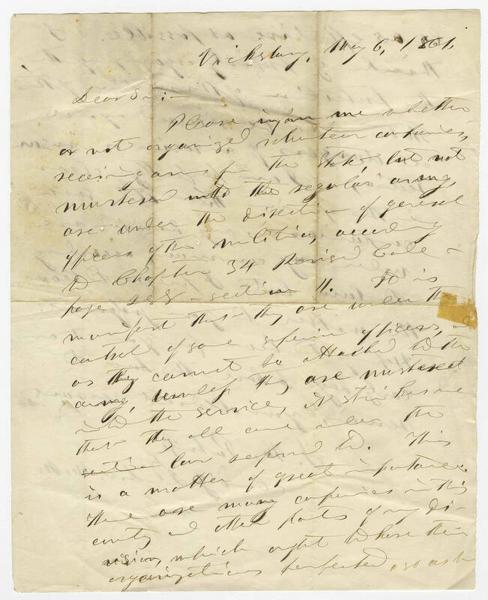 Vicksburg, May 6, 1861,
Dear Sir:—
Please inform me whether
or not organized volunteer companies,
receiving arms from the State, but not
mustered into the regular army,
are under the direction of general
officers of the militia, according
to Chapter 34 Revised Code —
page section 11. It is
manifest that they are under the
control of some superior officers,
as they cannot be attached to the
army, unless they are mustered
into the service, it strikes me
that they all come under the
section law referred to. This
is a matter of great importance.
There are many companies in this
county and other parts of my di-
vision, which ought to have their
organizations perfected, so as to